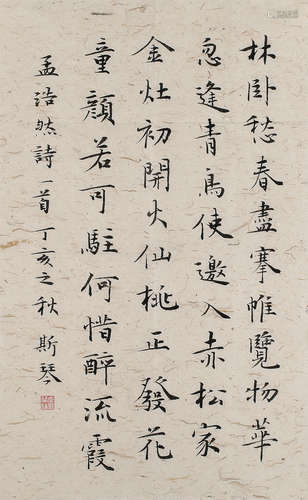 林卧愁春盡搴帷覽物華
忽逢青鳥使邀入赤松家
金灶初開火仙桃正發花
童顏若可駐何惜醉流霞
孟浩然詩一首丁亥之秋斯琴